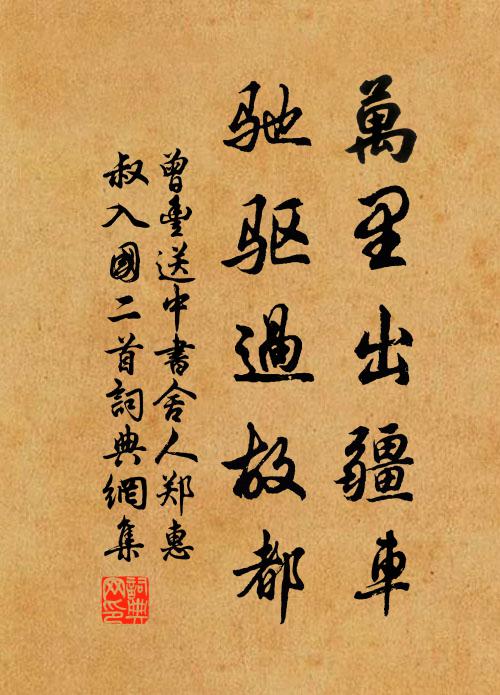 萬里出疆車
馳驱過故都
曾豐送中書舍人郑惠
叔入國二首詞典網集
詞典
网印